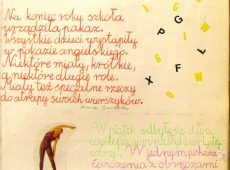 Na koniec roku szkoła
urządziła pokaz.
Wszystkie dzieci wystąpiły
w pokazie angielskiego.
Niektóre miały, krótkie,
a niektóre długie role.
Miały też specjalne rzeczy
do atrapy swoich wierszyków.
I
P I G
G I
W
P G
X F O
W
W piątek odbyły się dwa
W jednym pokazie
ćwiczenia z obręczami